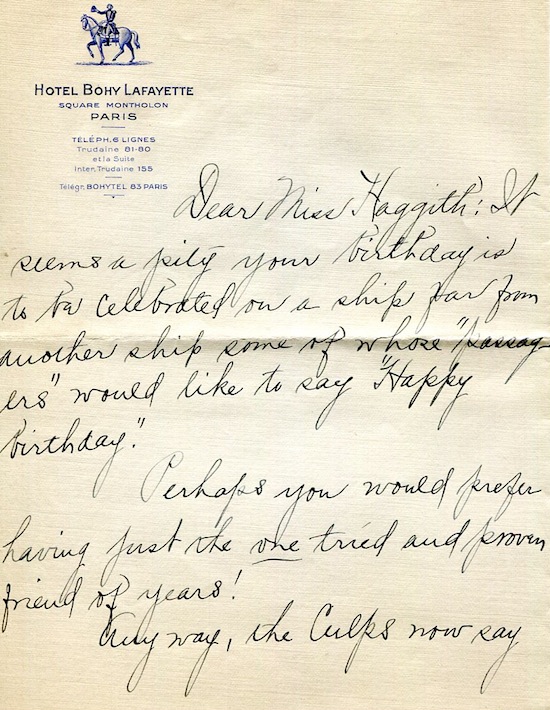 HOTEL BOHY LAFAYETTE
SQUARE MONTHOLON
PARIS
TÉLÉPH. 6 LIGNES
Trudaine 81-80
et la Suite
Inter. Trudaine 155
Télégr. BOHYTEL 83 PARIS
Dear Miss Haggith: It
seems a pity your birthday is
to be celebrated on a ship far from
another ship some of whose "passag-
ers" would like to say "Happy
birthday."
Perhaps you would prefer
having just the one tried and proven
friend of years!
Any way, the Culps now say